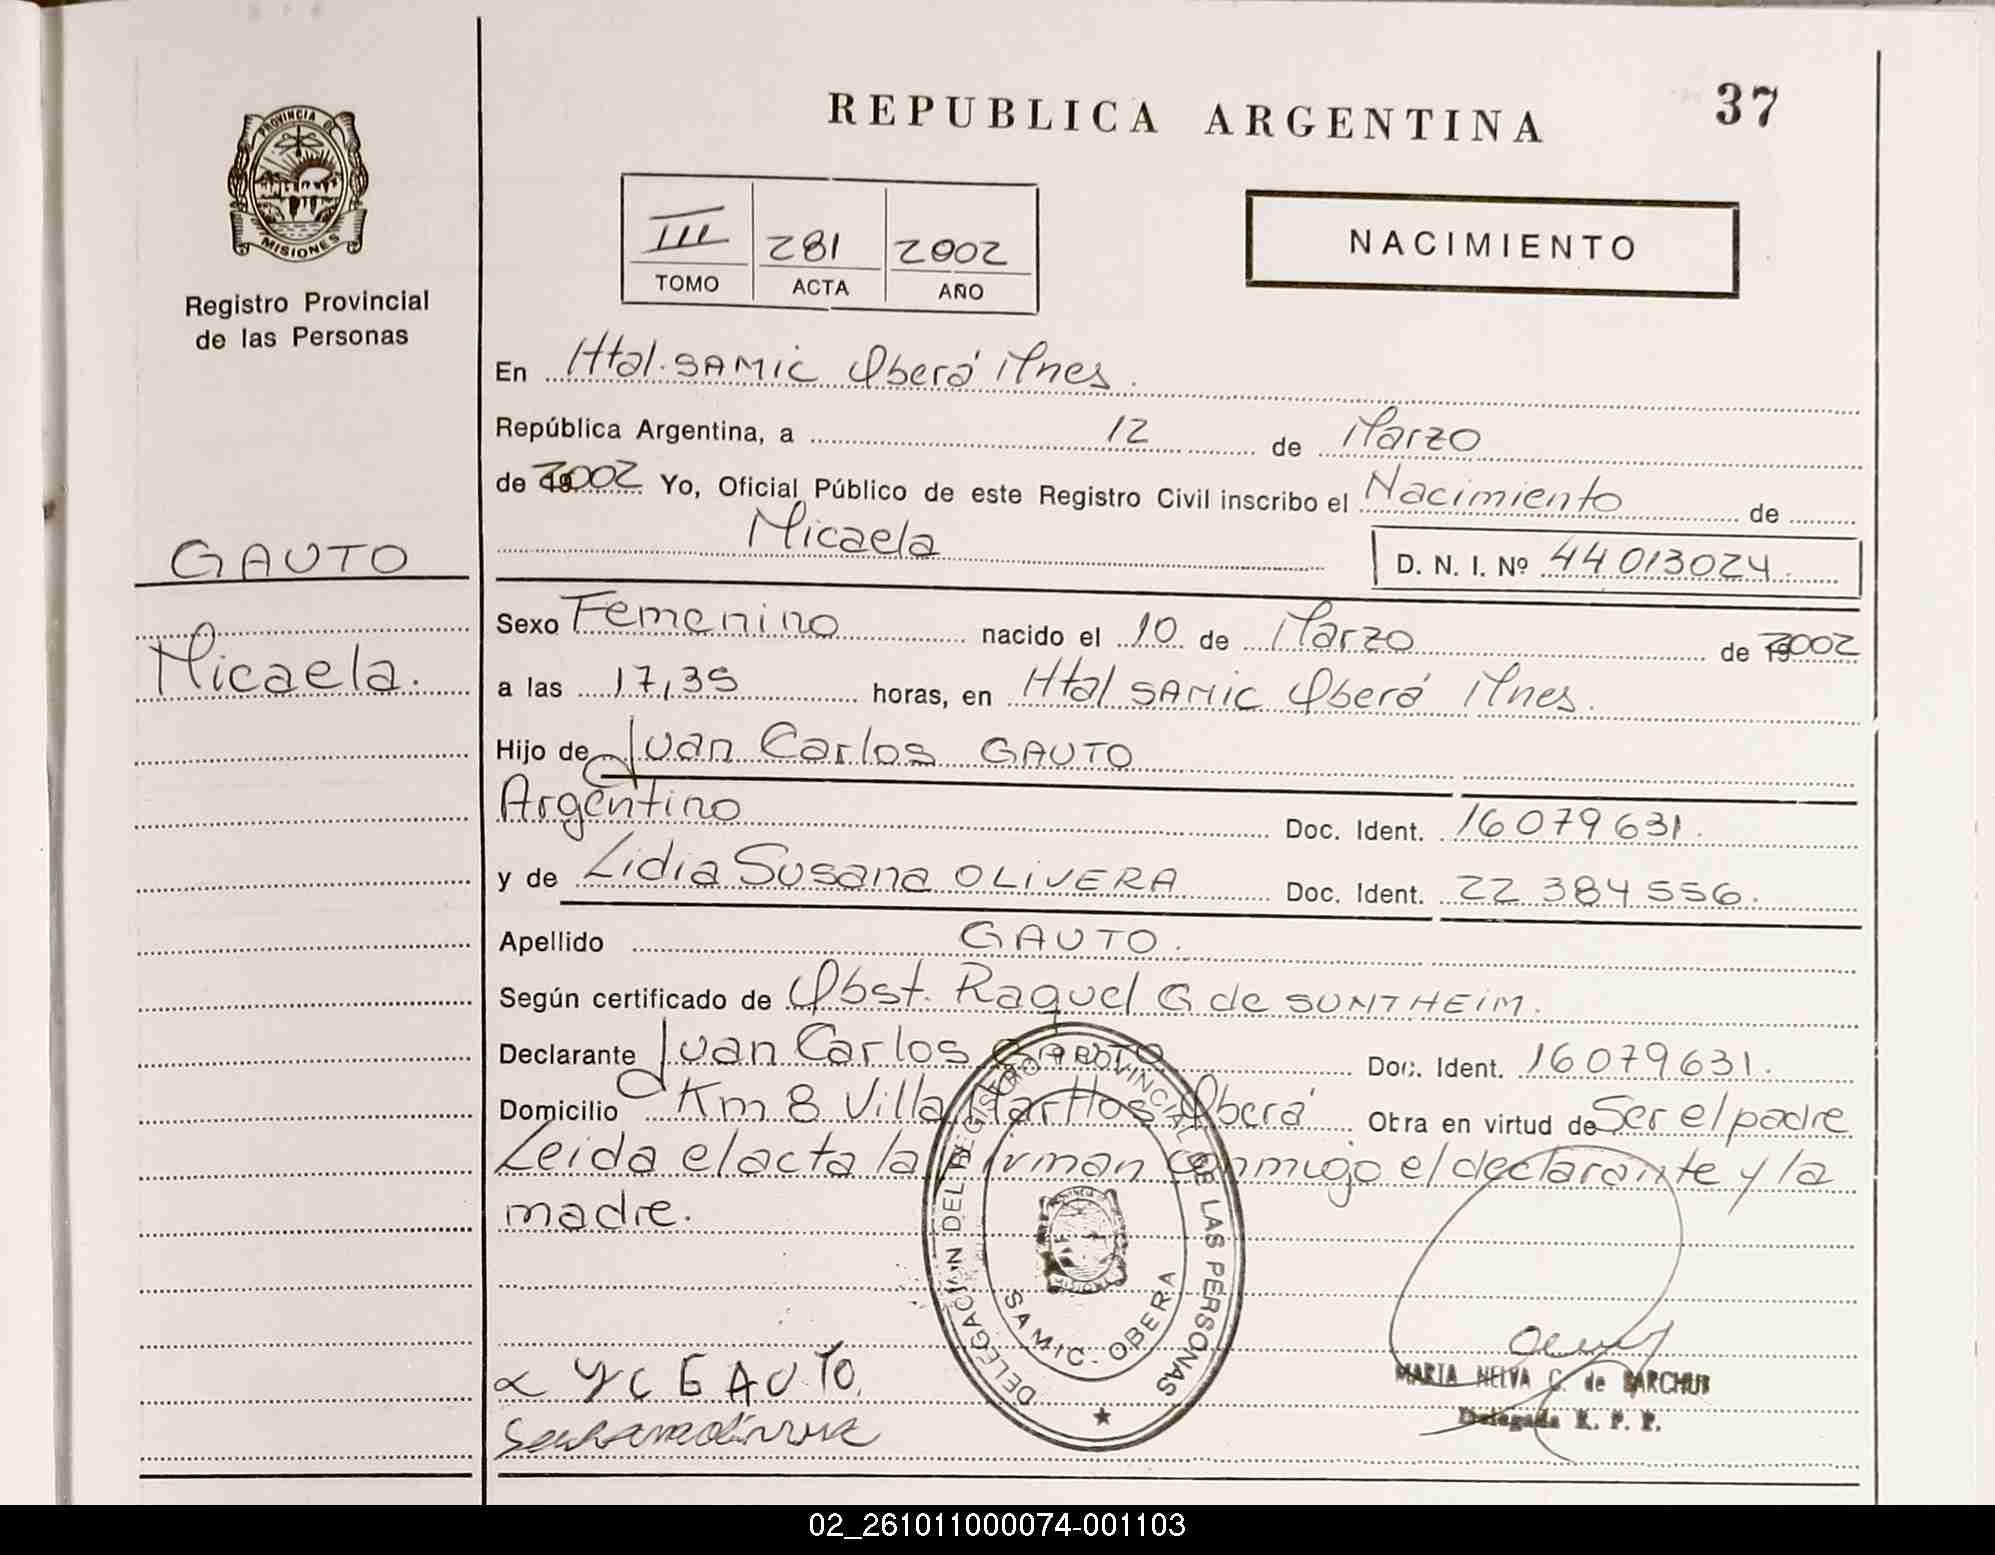 REPUBLICA ARGENTINA
37
PROVINCIA DE
MISIONES
Registro Provincial
de las Personas
III 281 2002
TOMO ACTA AÑO
NACIMIENTO
En Htal. SAMIC Oberá Mnes.
República Argentina, a 12 de Marzo
de 2002 Yo, Oficial Público de este Registro Civil inscribo el Nacimiento de
Micaela D. N. I. Nº 44013024.
GAUTO
Micaela.
Sexo Femenino nacido el 10 de Marzo de 2002
a las 17,35 horas, en Htal SAMIC Oberá Mnes.
Hijo de Juan Carlos GAUTO
Argentino Doc. Ident. 16079631.
y de Lidia Susana OLIVERA Doc. Ident. 22 384 556.
Apellido GAUTO.
Según certificado de Obst. Raquel G de SUNTHEIM.
Declarante Juan Carlos GAUTO Doc. Ident. 16079631.
Domicilio Km 8 Villa Oberá Obra en virtud de Ser el padre
Leida el acta la firman conmigo el declarante y la
madre.
DELEGACION DEL REGISTRO PROVINCIAL DE LAS PERSONAS
SAMIC - OBERA
GAUTO.
MARIA NELVA C. de BARCHUB
Delegada R. P. P.
02_261011000074-001103